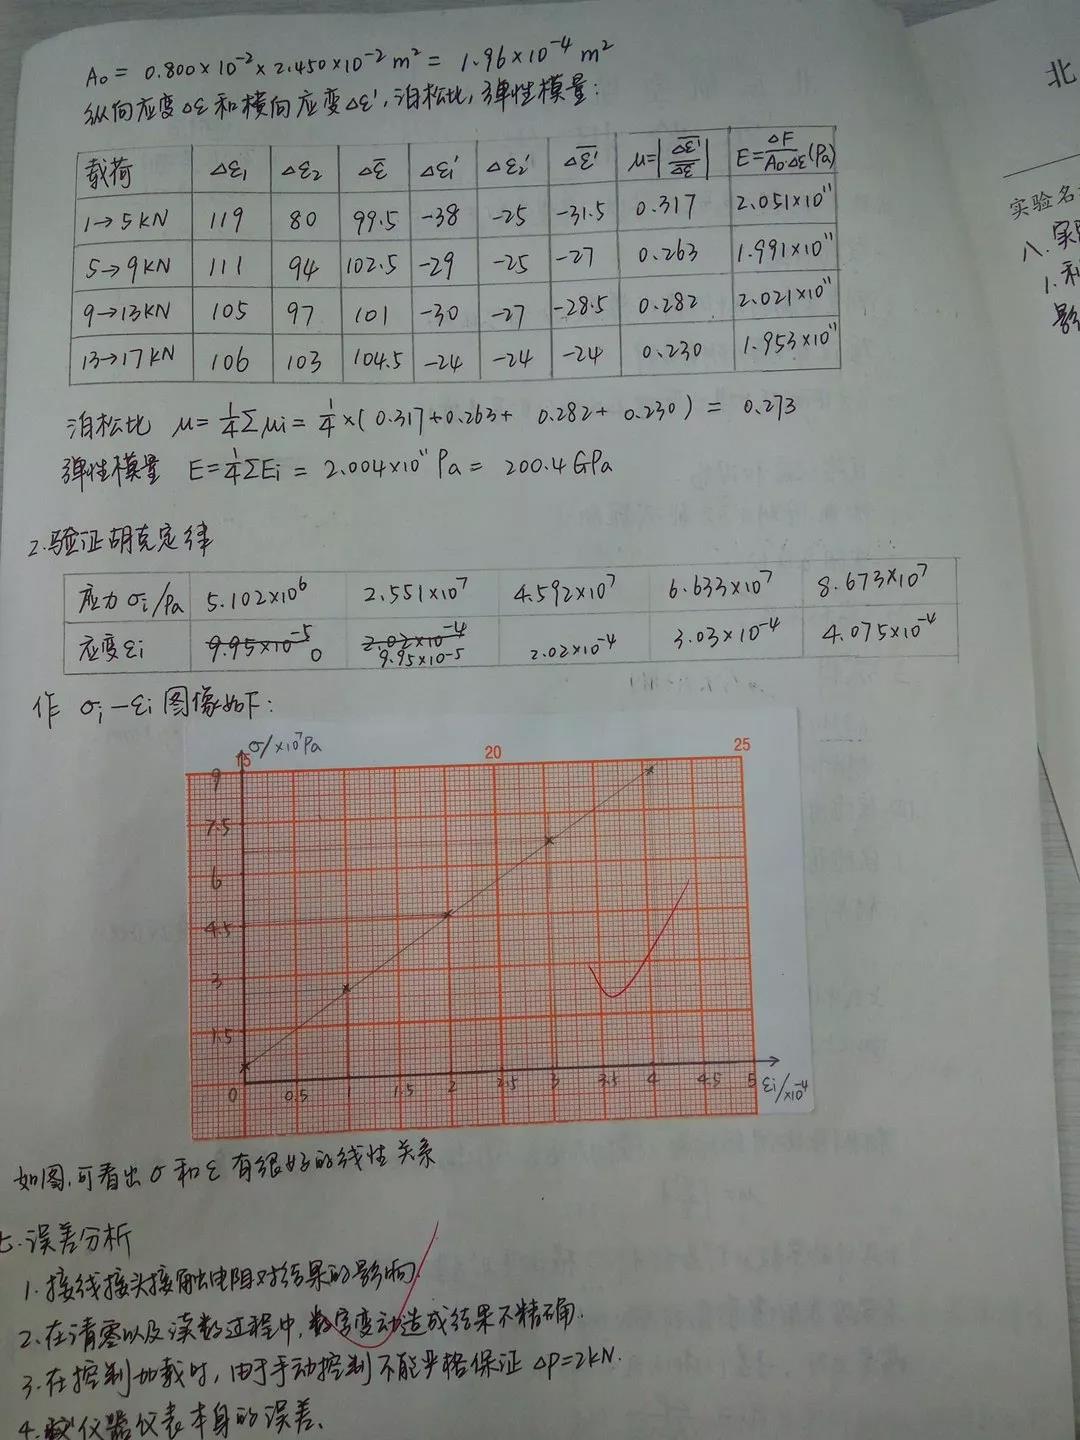 A₀ = 0.800×10⁻²×2.450×10⁻² m² = 1.96×10⁻⁴ m²
纵向应变Δε和横向应变Δε',泊松比,弹性模量:
载荷 Δε₁ Δε₂ Δε̅ Δε₁' Δε₂' Δε̅' μ=|Δε̅'/Δε̅| E=ΔF/A₀·Δε(Pa)
1→5KN 119 80 99.5 -38 -25 -31.5 0.317 2.051×10¹¹
5→9KN 111 94 102.5 -29 -25 -27 0.263 1.991×10¹¹
9→13KN 105 97 101 -30 -27 -28.5 0.282 2.021×10¹¹
13→17KN 106 103 104.5 -24 -24 -24 0.230 1.953×10¹¹
泊松比 μ=¼Σμi=¼×(0.317+0.263+0.282+0.230)=0.273
弹性模量 E=¼ΣEi=2.004×10¹¹Pa=200.4GPa
2.验证胡克定律
应力σi/Pa 5.102×10⁶ 2.551×10⁷ 4.592×10⁷ 6.633×10⁷ 8.673×10⁷
应变εi 9.95×10⁻⁵ 2.02×10⁻⁴
0 9.95×10⁻⁵ 2.02×10⁻⁴ 3.03×10⁻⁴ 4.075×10⁻⁴
作 σi—εi图像如下:
σ/×10⁷Pa
15 20 25
9
7.5
6
4.5
3
1.5
0 0.5 1 1.5 2 2.5 3 3.5 4 4.5 5 εi/×10⁻⁴
如图,可看出σ和ε有很好的线性关系
七.误差分析
1.接线接头接触电阻对结果的影响.
2.在清零以及读数过程中,数字变动造成结果不精确.
3.在控制加载时,由于手动控制不能严格保证 ΔP=2KN.
4.仪器仪表本身的误差.
北
实验名
八.实
1.利
影